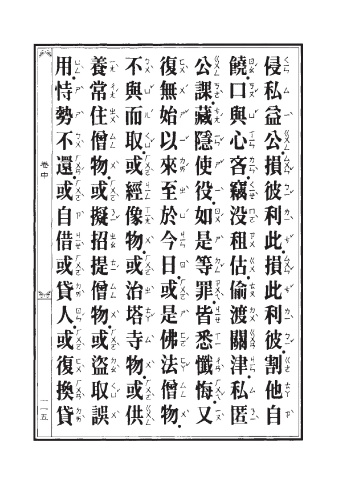 侵私益公。損彼利此。損此利彼。割他自
饒。口與心吝。竊没租估。偷渡關津。私匿
公課。藏隱使役。如是等罪。皆悉懺悔。又
復無始以來至於今日。或是佛法僧物。
不與而取。或經像物。或治塔寺物。或供
養常住僧物。或擬招提僧物。或盜取誤
用。恃勢不還。或自借或貸人。或復換貸
卷中
一一五